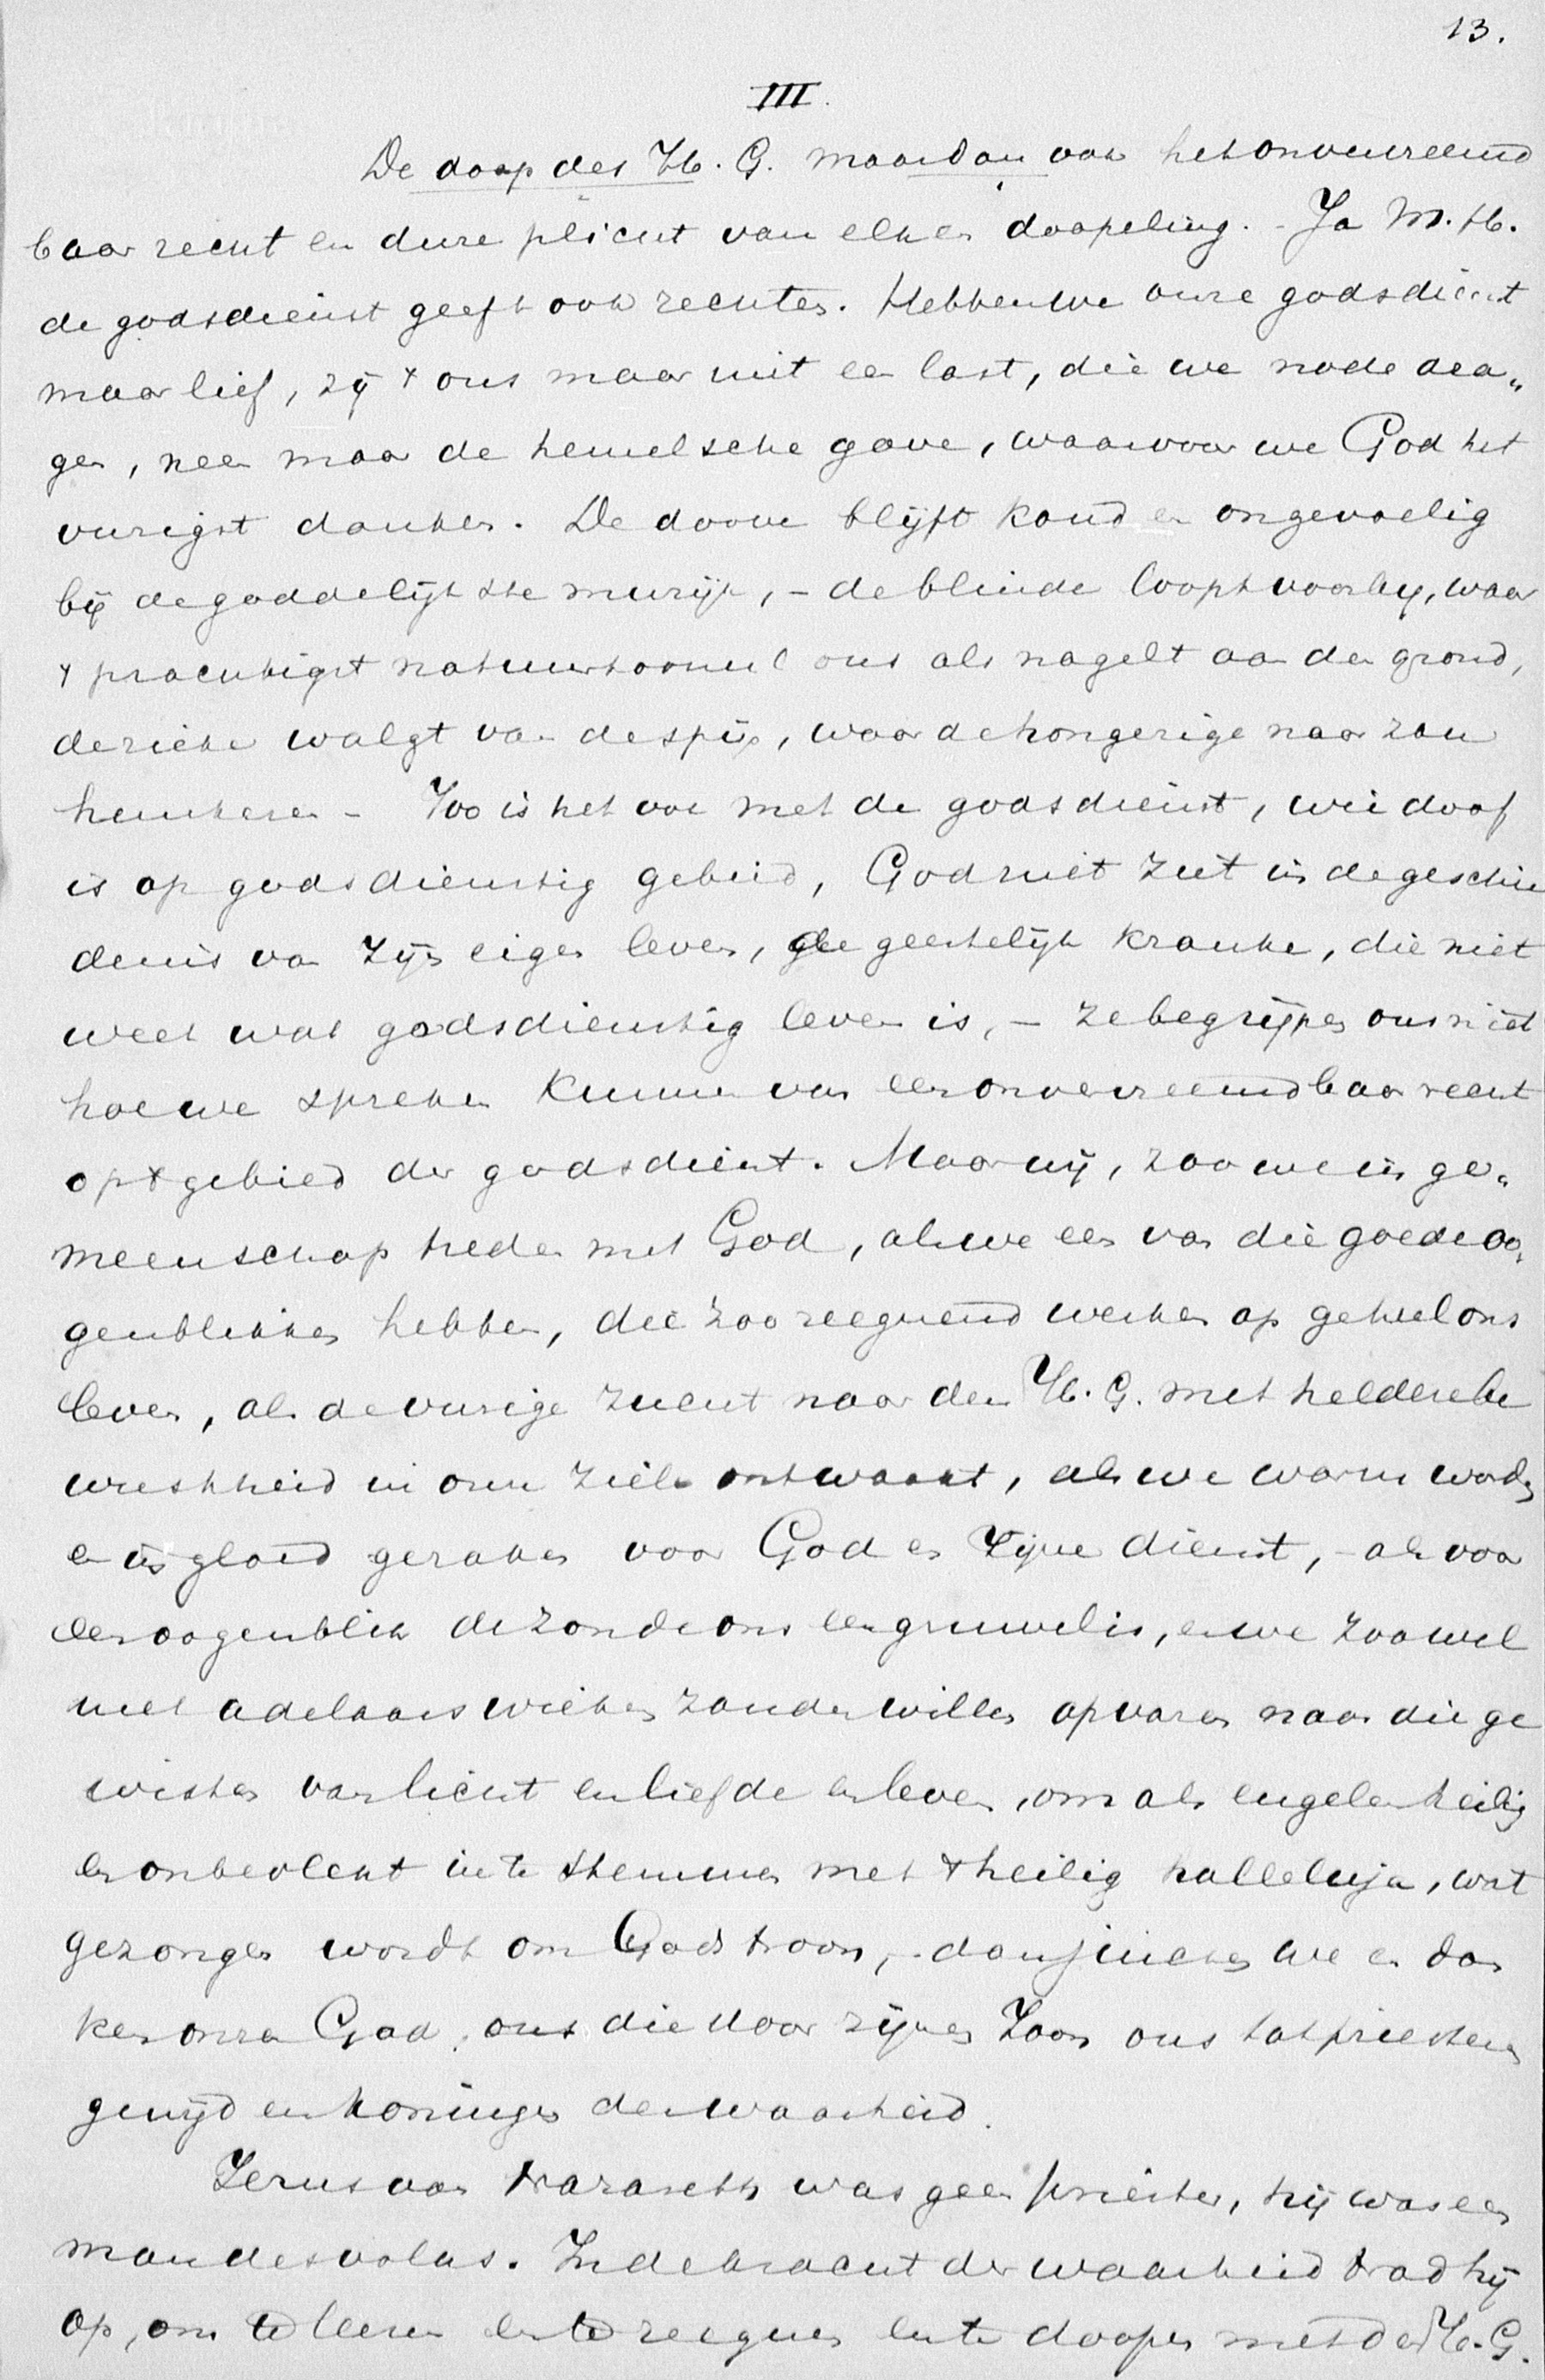 13.
III.
De doop des H. G. maar dan ook het onvervreemd
baar recht en dure plicht van elken doopeling. - Ja M. H.
de godsdienst geeft ook rechten. Hebben we onze godsdienst
maar lief, zij 't ons maar niet een last, die we node dra„
gen, neen maar de hemelsche gave, waarvoor we God het
vurigst danken. De doove blijft koud en ongevoelig
bij de goddelijkste muziek, - de blinde loopt voorbij, waar
't prachtigst natuurtooneel ons als nagelt aan den grond,
de zieke walgt van de spijs, waar de hongerige naar zou
hunkeren - Zoo is het ook met de godsdienst, wie doof
is op godsdienstig gebied, God niet ziet in de geschie
denis van zijn eigen leven, de geestelijk kranke, die niet
weet wat godsdienstig leven is, - ze begrijpen ons niet
hoe we spreken kunnen van een onvervreemdbaar recht
op 't gebied der godsdienst. Maar wij, zoo we in ge„
meenschap treden met God, als we een van die goede oo„
genblikken hebben, die zoo zegenend werken op geheel ons
leven, als de vurige zucht naar den H. G. met heldere be
wustheid in onze ziele ontwaakt, als we warm worden
en in gloed geraken voor God en Zijne dienst, - als voor
een oogenblik de zonde ons een gruwel is, en we zoo wel
met adelaarswieken zouden willen opvaren naar die ge
westen van licht en liefde en leven, om als engelen heilig
en onbevlekt in te stemmen met 't heilig halleluja, wat
gezongen wordt om Gods troon, - dan juichen we en dan
ken onzen God, ons die door zijnen Zoon ons tot priesteren
gewijd en koningen der waarheid.
Jezus van Nazareth was geen priester, hij was een
man des volks. In de kracht der waarheid trad hij
op, om te leeren en te zegenen en te doopen met den H. G.